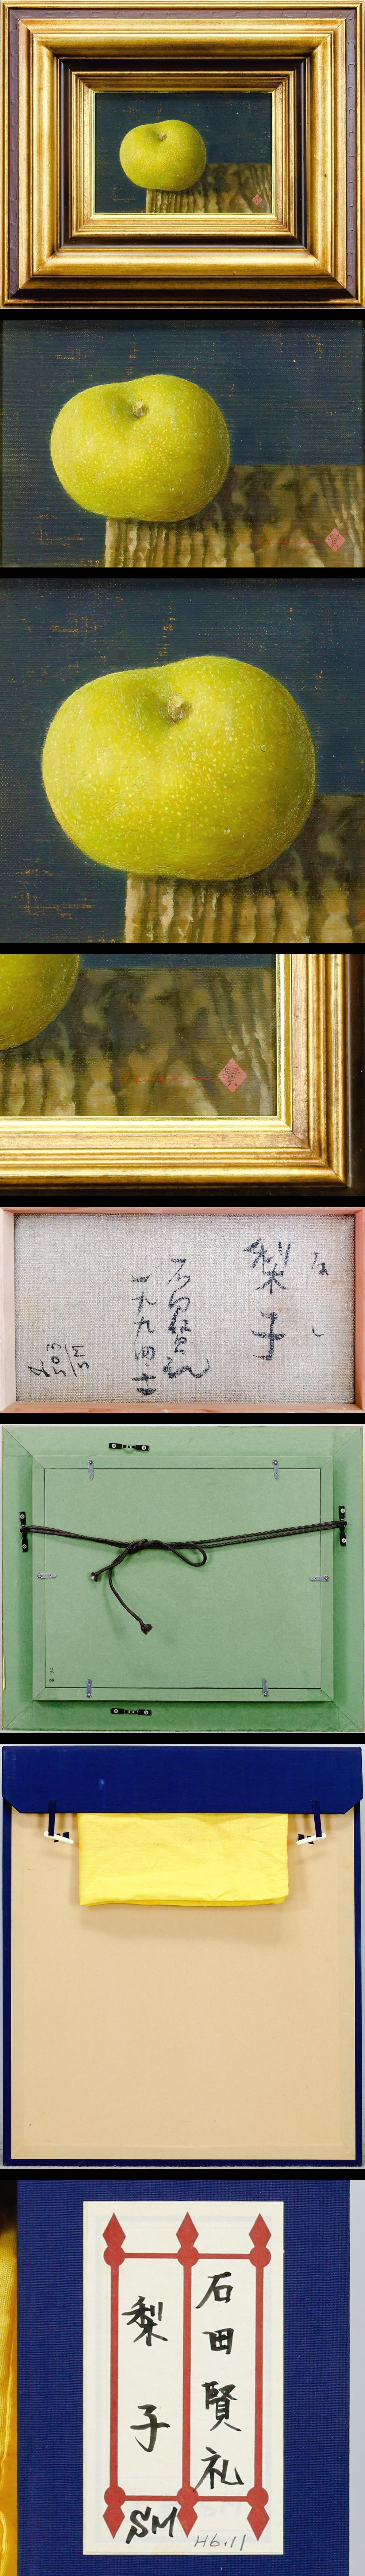 なし
梨子
石田賢礼
一九九四・十一
503
SM
石田賢礼
梨子
SM
H6.11